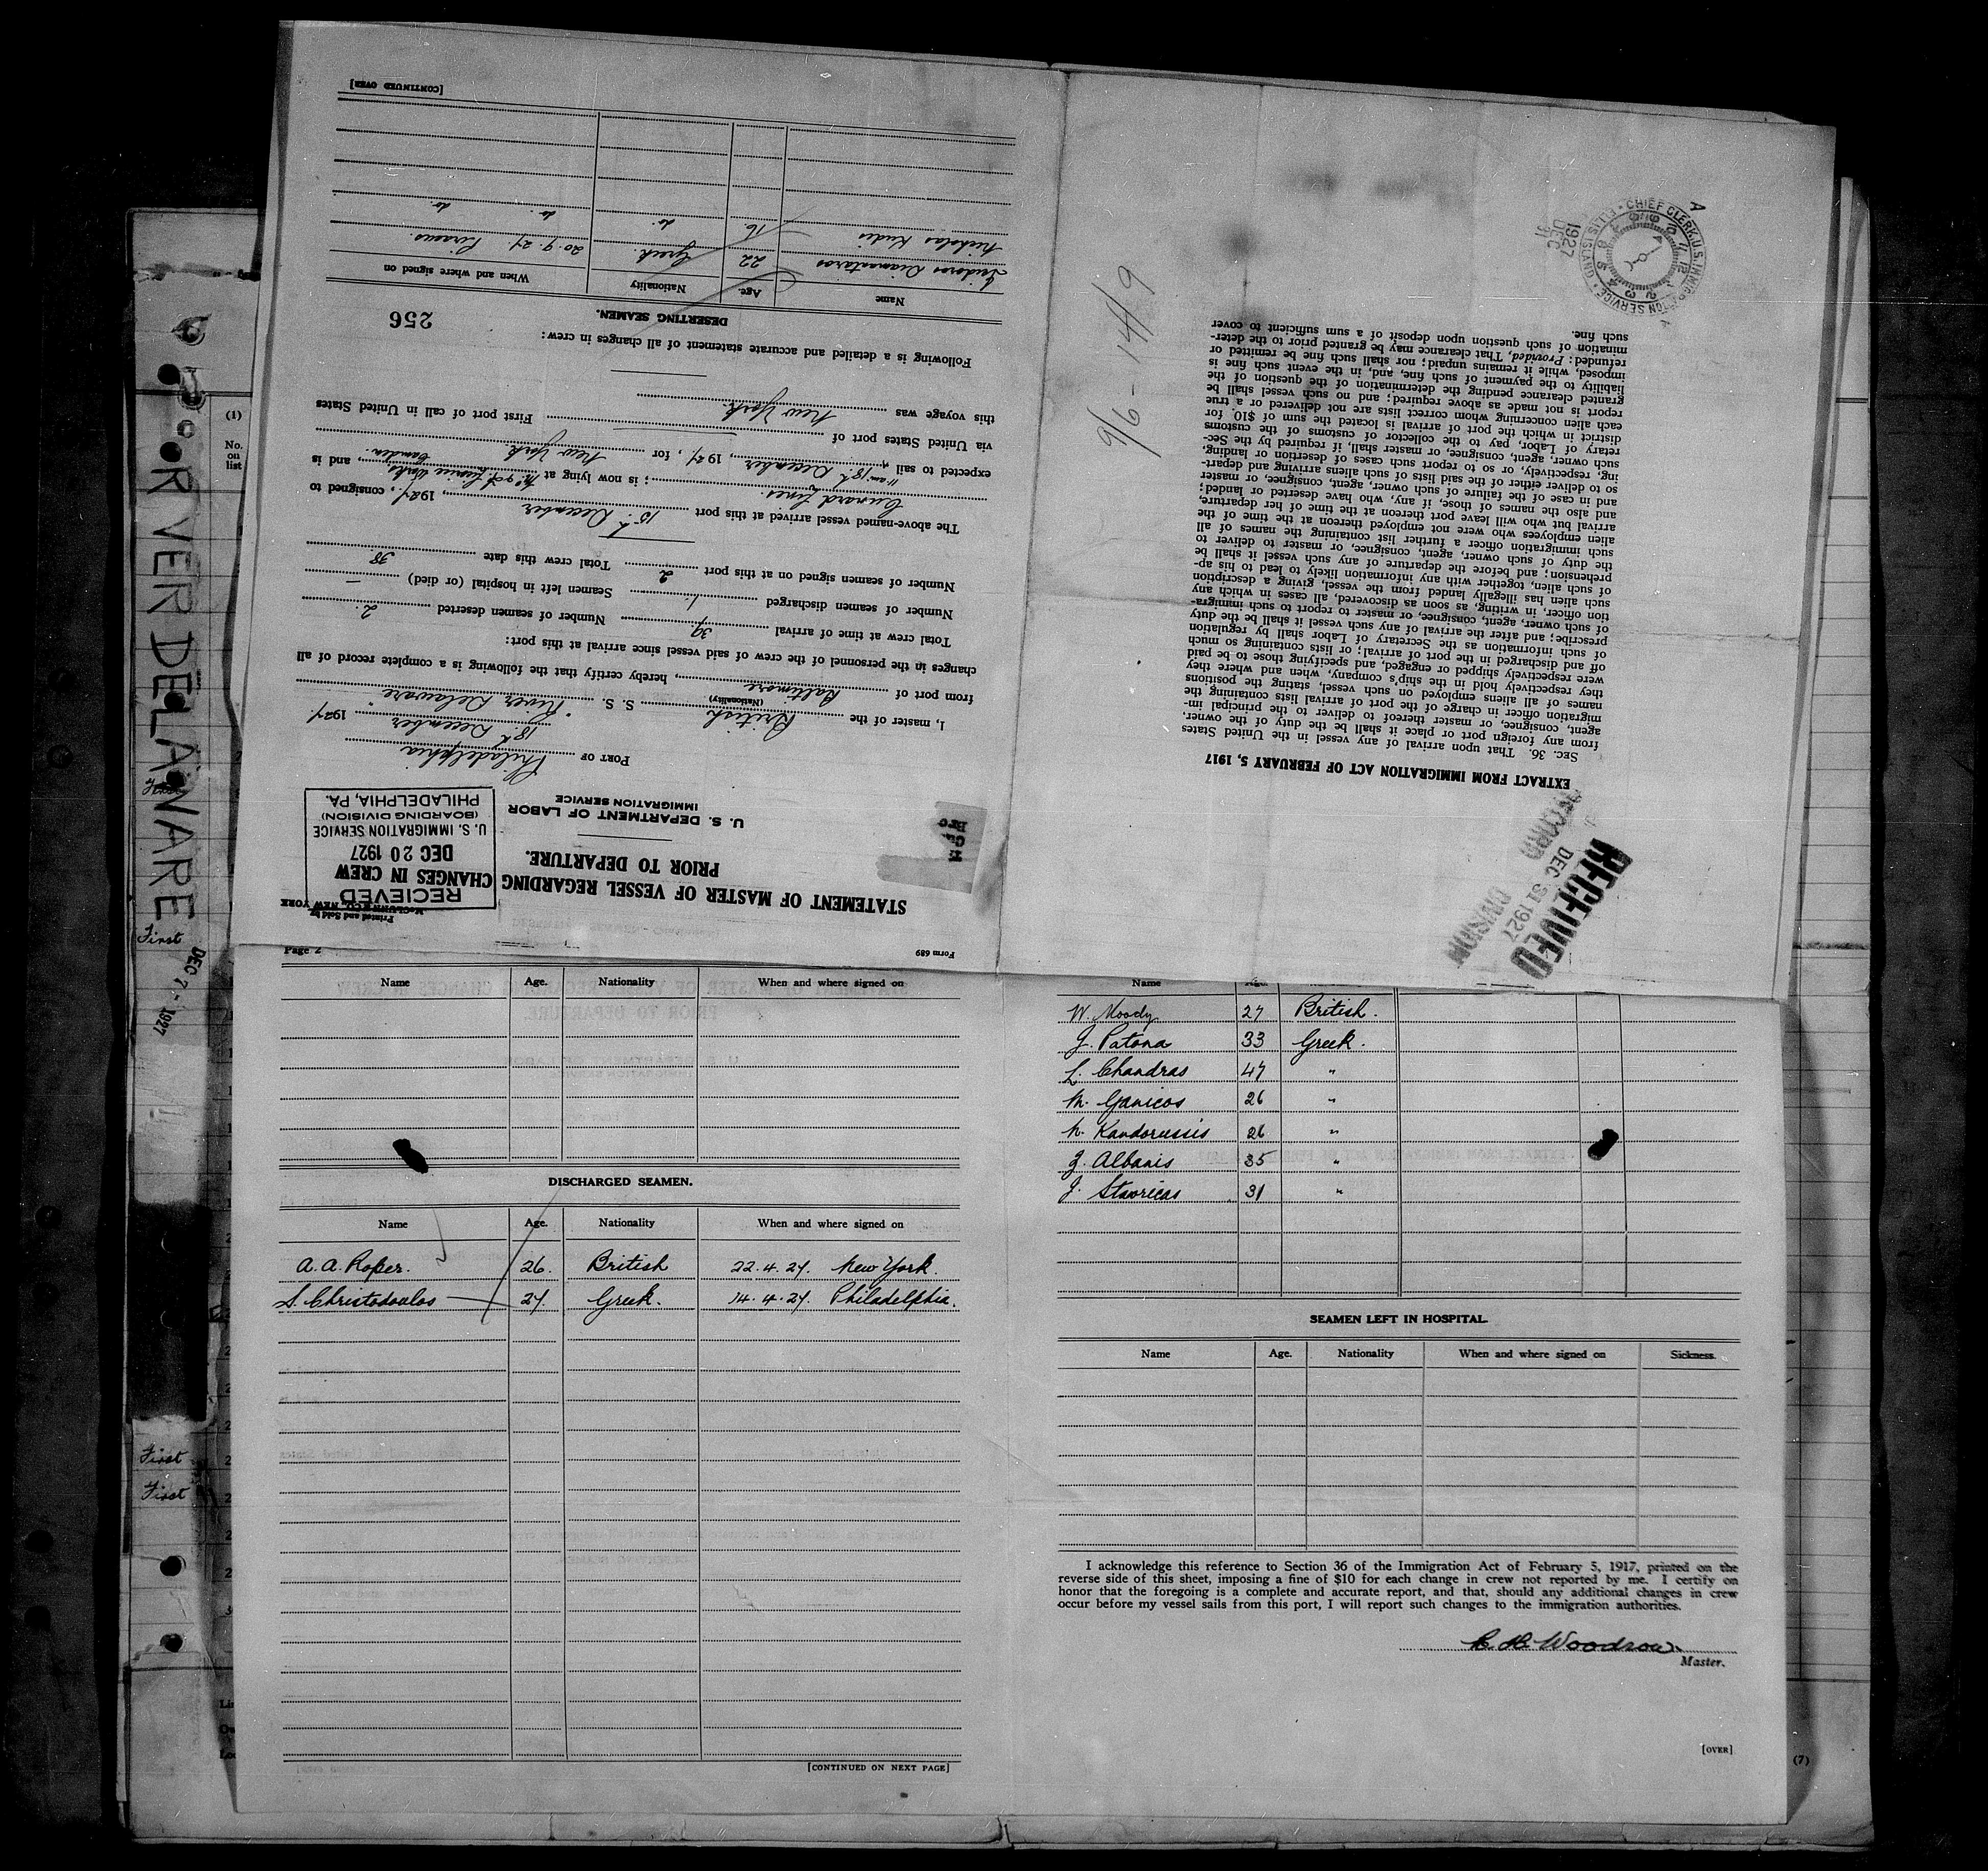 RIVER DELAWARE
DEC 7 - 1927
First
First
First
First
(1)
No.
on
list
Form 689
Printed and Sold by
NEW YORK
STATEMENT OF MASTER OF VESSEL REGARDING CHANGES IN CREW
PRIOR TO DEPARTURE.
U. S. DEPARTMENT OF LABOR
IMMIGRATION SERVICE
RECIEVED
DEC 20 1927
U. S. IMMIGRATION SERVICE
(BOARDING DIVISION)
PHILADELPHIA, PA.
PORT OF Philadelphia
18th December 1927
I, master of the British S. S. "River Delaware"
(Nationality)
from port of Baltimore, hereby certify that the following is a complete record of all
changes in the personnel of the crew of said vessel since arrival at this port:
Total crew at time of arrival 39 Number of seamen deserted 2.
Number of seamen discharged 1 Seamen left in hospital (or died) —
Number of seamen signed on at this port 2 Total crew this date 38
The above-named vessel arrived at this port 15th December, 1927, consigned to
Cunard Lines; is now lying at Camden, and is
expected to sail 11 am 18th December, 1927, for New York
via United States port of First port of call in United States
this voyage was New York.
Following is a detailed and accurate statement of all changes in crew:
256
DESERTING SEAMEN.
Name Age. Nationality When and where signed on
22 Greek. 20.9.27 Piraeus.
Nicholas Kudis 16. do. do. do.
[CONTINUED OVER]
RECEIVED
DEC 31 1927
RECORD DIVISION
EXTRACT FROM IMMIGRATION ACT OF FEBRUARY 5, 1917
SEC. 36. That upon arrival of any vessel in the United States
from any foreign port or place it shall be the duty of the owner,
agent, consignee, or master thereof to deliver to the principal im-
migration officer in charge of the port of arrival lists containing the
names of all aliens employed on such vessel, stating the positions
they respectively hold in the ship's company, when and where they
were respectively shipped or engaged, and specifying those to be paid
off and discharged in the port of arrival; or lists containing so much
of such information as the Secretary of Labor shall by regulation
prescribe; and after the arrival of any such vessel it shall be the duty
of such owner, agent, consignee, or master to report to such immigra-
tion officer, in writing, as soon as discovered, all cases in which any
such alien has illegally landed from the vessel, giving a description
of such alien, together with any information likely to lead to his ap-
prehension; and before the departure of any such vessel it shall be
the duty of such owner, agent, consignee, or master to deliver to
such immigration officer a further list containing the names of all
alien employees who were not employed thereon at the time of the
arrival but who will leave port thereon at the time of her departure,
and also the names of those, if any, who have deserted or landed;
and in case of the failure of such owner, agent, consignee, or master
so to deliver either of the said lists of such aliens arriving and depart-
ing, respectively, or so to report such cases of desertion or landing,
such owner, agent, consignee, or master shall, if required by the Sec-
retary of Labor, pay to the collector of customs of the customs
district in which the port of arrival is located the sum of $10 for
each alien concerning whom correct lists are not delivered or a true
report is not made as above required; and no such vessel shall be
granted clearance pending the determination of the question of the
liability to the payment of such fine, and, in the event such fine is
imposed, while it remains unpaid; nor shall such fine be remitted or
refunded: Provided, That clearance may be granted prior to the deter-
mination of such question upon deposit of a sum sufficient to cover
such fine.
9/6-14/9
CHIEF CLERK, U.S. IMMIGRATION SERVICE • ELLIS ISLAND
1927
DEC
31
Page 2
Name Age. Nationality When and where signed on
DISCHARGED SEAMEN.
Name Age. Nationality When and where signed on
A. A. Roper. 26. British 22.4.27. New York.
S. Christodoulos 27. Greek. 14.4.27. Philadelphia.
[CONTINUED ON NEXT PAGE]
Name Age.
W. Moody 27 British.
J. Patona 33 Greek.
L. Chandras 47 "
M. Ganicos 26 "
N. Kandorussis 26 "
J. Albanis 35 "
J. Stavricas 31 "
SEAMEN LEFT IN HOSPITAL.
Name Age. Nationality When and where signed on Sickness.
I acknowledge this reference to Section 36 of the Immigration Act of February 5, 1917, printed on the
reverse side of this sheet, imposing a fine of $10 for each change in crew not reported by me. I certify on
honor that the foregoing is a complete and accurate report, and that, should any additional changes in crew
occur before my vessel sails from this port, I will report such changes to the immigration authorities.
Woodrow
Master.
[OVER]
(7)